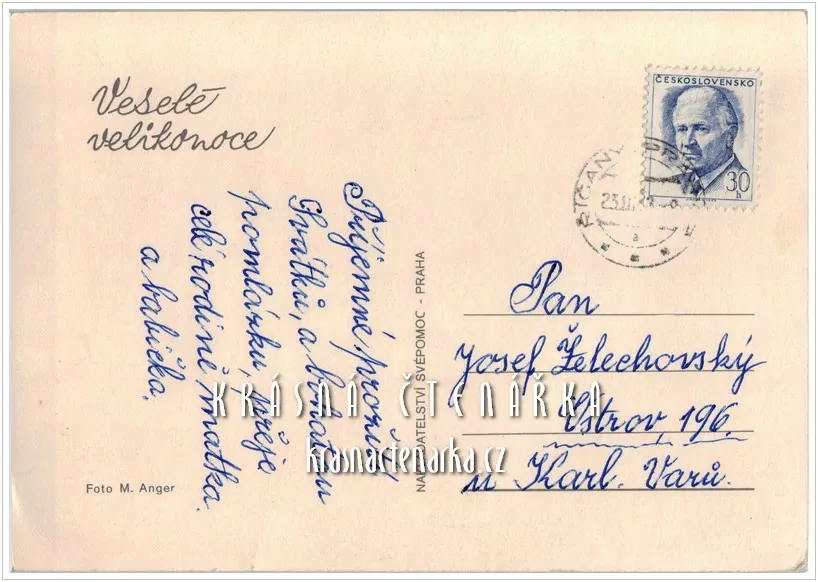 Veselé
velikonoce
ČESKOSLOVENSKO
30 h
ŘÍČANY U PRAHY
Příjemné prožití
Svátků, a bohatou
pomlázku, přeje
celé rodině matka
a babička.
NAKLADATELSTVÍ SVÉPOMOC - PRAHA
Pan
Josef Želechovský
Ostrov 196.
u Karl. Varů.
KRÁSNÁ ČTENÁŘKA
krasnactenarka.cz
Foto M. Anger